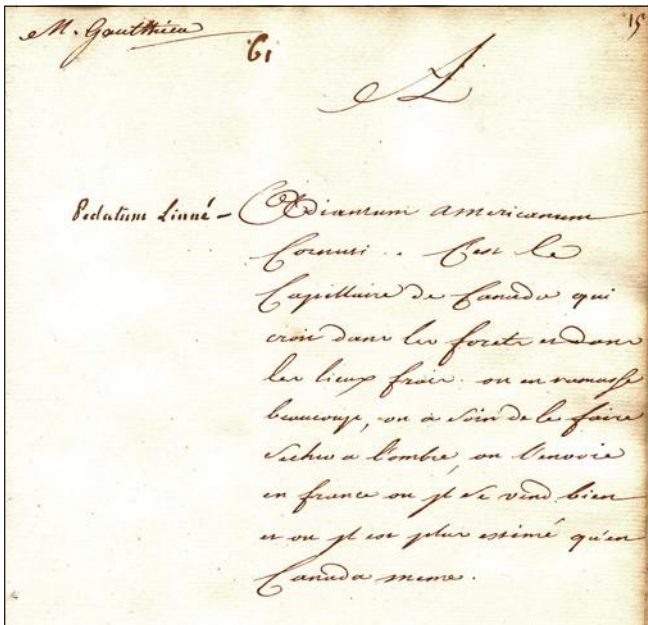 M. Gautthier
15
61
A
Pedatum Linné - Adiantum americanum
Cornuti .. C'est le
Capillaire de Canada qui
croit dans les forets et dans
les lieux frais. on en ramasse
beaucoup, on a soin de le faire
secher a l'ombre, on l'envoie
en france ou jl se vend bien
et ou jl est plus estimé qu'en
Canada meme.